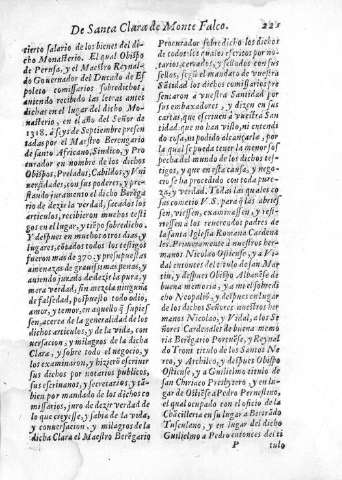 De Santa Clara de Monte Falco. 221
cierto salario de los bienes del di-
cho Monasterio. El qual Obispo
de Perusa, y el Maestro Reynal-
do Governador del Ducado de Es
poleto comissarios sobredichos,
aniendo recibido las letras antes
dichas en el lugar del dicho Mo-
nasterio, en el año del Señor de
1318. à seys de Septiembre presen
tadas por el Maestro Berengario
de santo Africano, Sindico, y Pro
curador en nombre de los dichos
Obispos, Prelados, Cabildos, y Vni
versidades, con sus poderes, y pres-
tando juramento el dicho Berēga-
rio de dezir la verdad, sacados los
articulos, recibieron muchos testi
gos en el lugar, y tiēpo sobredicho.
Y despues en muchos otros dias, y
lugares, cōtados todos los testigos
fueron mas de 370. y prepuestas
amenazas de gravissimas penas, y
aniendo jurado de dezir la pura, y
mera verdad, sin mezcla ninguna
de falsedad, pospuesto todo odio,
amor, y temor, en aquello q̄ supies
sen, acerca de la generalidad de los
dichos articulos, y de la vida, con
uersacion, y milagros de la dicha
Clara, y sobre todo el negocio, y
los examinaron, y hizierō escrivir
sus dichos por notarios publicos,
sus escrivanos, y secretarios, y tā-
bien por mandado de los dichos co
missarios, juro de dezir verdad de
lo que creyesse, y sabia de la vida,
y conuersacion, y milagros de la
dicha Clara el Maestro Berēgario
Procurador sobredicho los dichos
de todos los quales escritos por no-
tarios, cerrados, y sellados con sus
sellos, segun el mandado de su
Sātidad los dichos comissarios pre
sentaron a vuestra Santidad por
sus embaxadores, y dizen en sus
cartas, que escriuen à vuestra San
tidad que no han visto, ni entendi
do cosa, ni podido alcançarla, por
la qual se pueda tener la menor sos
pecha del mundo de los dichos tes-
tigos, y que en esta causa, y nego-
cio se ha procedido con toda pure-
za, y verdad. Todas las quales co
sas cometio V. S. para q̄ las abries
sen, viessen, examinassen, y refi-
riessen a los venerados padres de
la santa Iglesia Romana Cardena
les. Primeramente à nuestros her
manos Nicolao Ostiense, y a Vi-
dal entonces del titulo de san Mar
tin, y despues Obispo Albanēse de
buena memoria, y a mi el sobredi
cho Neopaliō, y despues en lugar
de los dichos Señores nuestros her
manos Nicolao, y Vidal, a los Se
ñores Cardenales de buena memo
ria Berēgario Portuēse, y Reynal
do Tront titulo de los Santos Ne
reo, y Archileo, y despues Obispo
Ostiense, y a Guilielmo titulo de
san Chriaco Presbytero, y en lu-
gar de Ostiēse a Pedro Pernestino,
el qual ocupado con el oficio de la
Chācilleria en su lugar a Berādo
Tusculano, y en lugar del dicho
Guilielmo a Pedro entonces del ti
P tulo